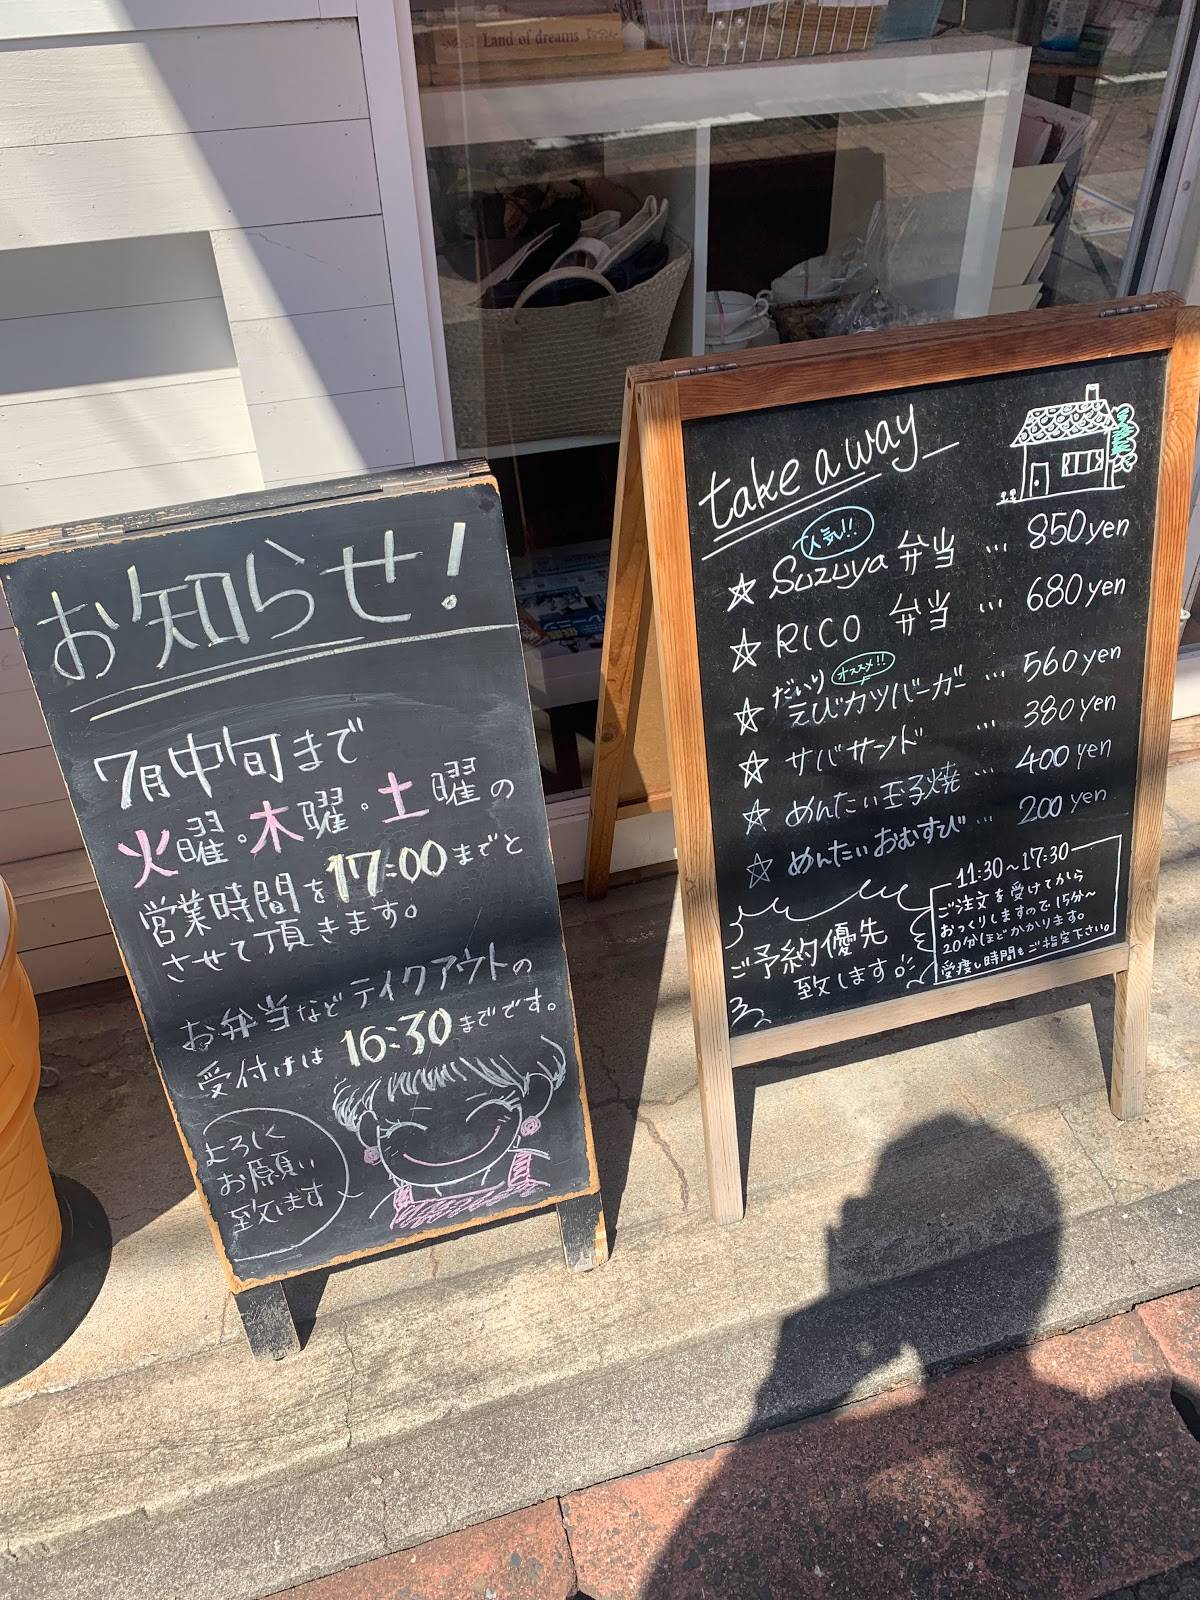 Land of dreams
お知らせ!
7月中旬まで
火曜・木曜・土曜の
営業時間を17:00までと
させて頂きます。
お弁当などテイクアウトの
受付けは16:30までです。
よろしく
お願い
致します
take away
人気!!
☆ Suzuya 弁当 … 850yen
☆ RICO 弁当 … 680yen
オススメ!!
☆ だいりえびカツバーガー … 560yen
☆ サバサンド … 380yen
☆ めんたい玉子焼 … 400yen
☆ めんたいおむすび … 200yen
ご予約優先
致します
11:30～17:30
ご注文を受けてから
おつくりしますので15分～
20分ほどかかります。
受渡し時間もご指定下さい。